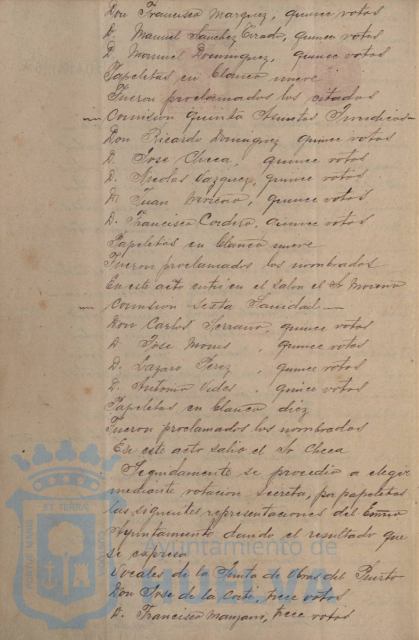 Don Francisco Marquez, quince votos
D. Manuel Sanchez Tirado, quince votos
D. Manuel Dominguez, quince votos
Papeletas en blanco nueve
Fueron proclamados los citados
— Comision quinta Asuntos Juridicos —
Don Ricardo Dominguez quince votos
D. Jose Checa, quince votos
D. Nicolas Vazquez, quince votos
D. Juan Moreno, quince votos
D. Francisco Cordero, quince votos
Papeletas en blanco nueve
Fueron proclamados los nombrados
En este acto entró en el salon el Sr Moreno
— Comision sexta Sanidad —
Don Carlos Serrano, quince votos
D. Jose , quince votos
D. Lazaro Perez, quince votos
D. Antonio Vides, quince votos
Papeletas en blanco, diez
Fueron proclamados los nombrados
En este acto salio el Sr Checa
Seguidamente se procedio a elegir
mediante votacion secreta, por papeletas
las siguientes representaciones del Excmo
Ayuntamiento dando el resultado que
se expresa
Vocales de la Junta de Obras del Puerto
Don Jose de la Corte, trece votos
D. Francisco Manzano, trece votos
Ayuntamiento de
HUELVA